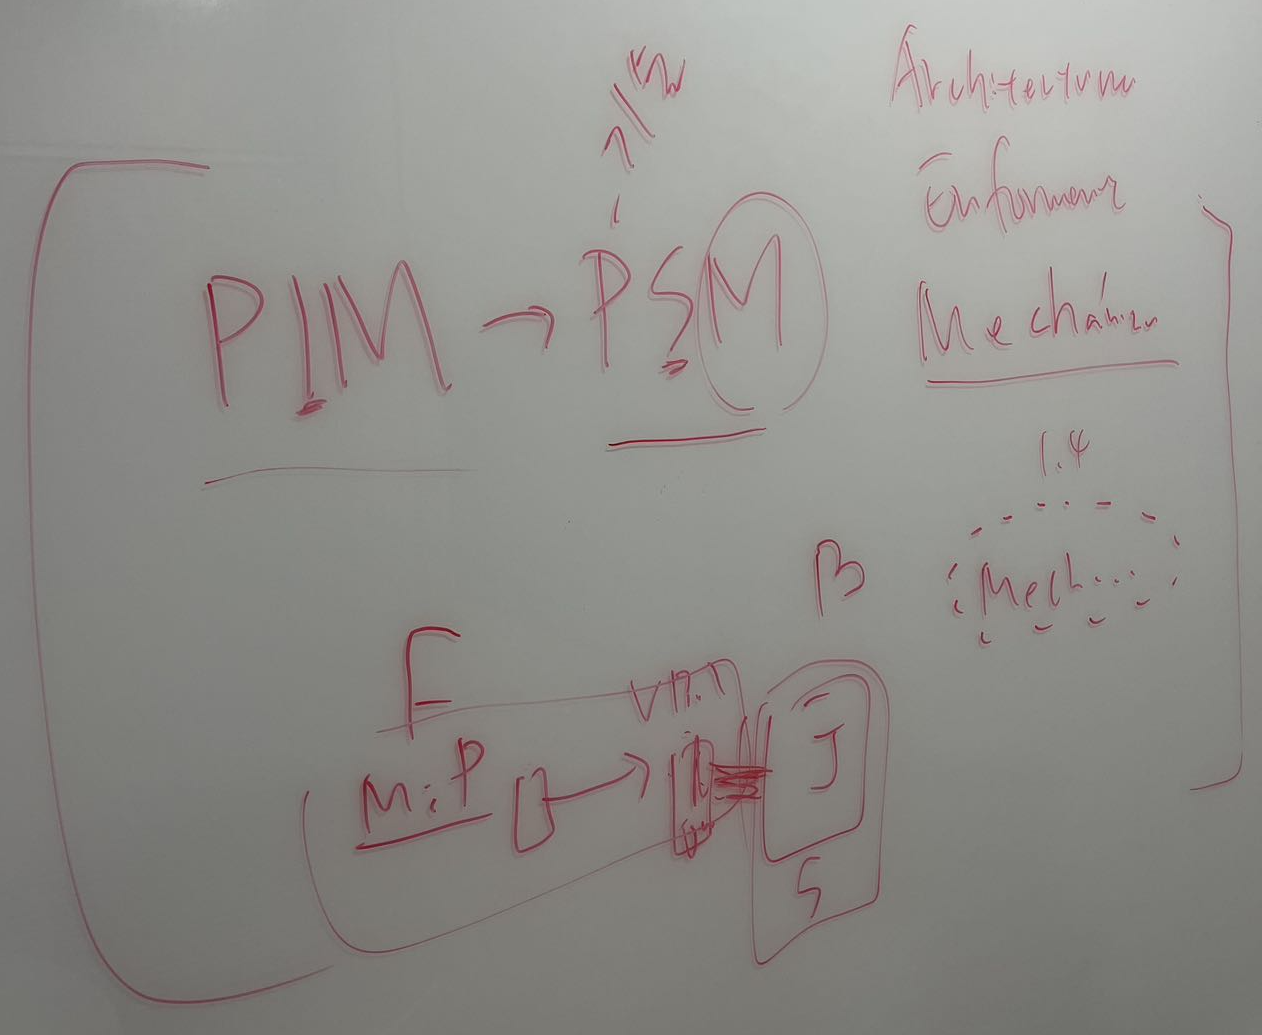 Architecture
Enforcement
PIM → PSM
Mechanism
1.4
Mech...
B
F
V17.1
M:P
J
S